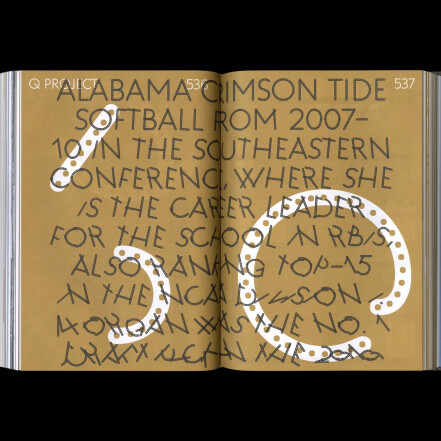 Q PROJECT 536 537
ALABAMA CRIMSON TIDE
SOFTBALL FROM 2007–
10 IN THE SOUTHEASTERN
CONFERENCE, WHERE SHE
IS THE CAREER LEADER
FOR THE SCHOOL IN RBIS,
ALSO RANKING TOP-15
IN THE NCAA
MORGAN WAS THE NO. 1
DRAFT PICK IN THE 2010